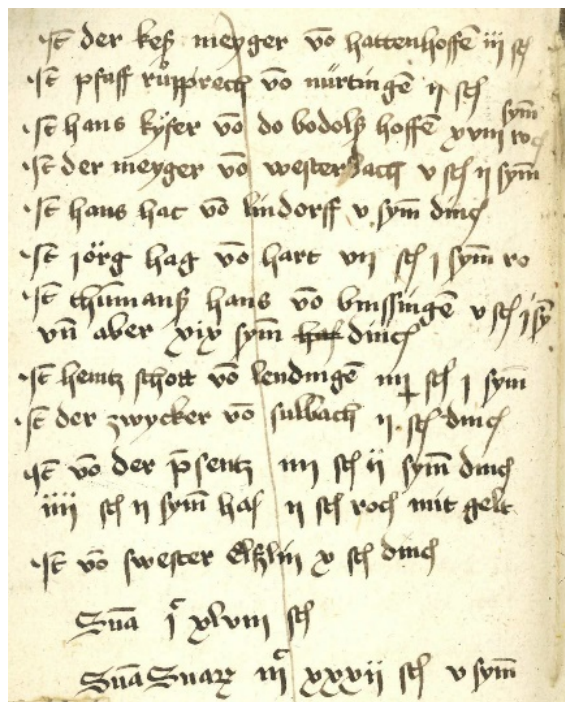 ·It der keß meyger vō hattenhoffē iij sch
·It pfaff růpprech vō nürtingē ij sch
·It hans kyfer vō do bodolß hoffē xviij sym̄ roc
·It der meyger vō westerbach v sch ij sym̄
·It hans hac vō lindorff v sym̄ dinc
·It jörg hag vō hart vij sch j sym̄ ro
·It thim̄anß hans vō bnissingē v sch j sȳ
vn̄ aber xix sym̄ dinc
·It heintz schott vō lendingē iiij sch j sym̄
·It der zwycker vō sulbach ij sch dinc
·It vō der p̄sentz iiij sch ij sym̄ dinc
iiij sch ij sym̄ hab ij sch roc mit gelt
·It vō swester Elßlin x sch dinc
Sum̄a jᶜ xlviij sch
Sum̄a Sumarꝝ iijᶜ xxxvij sch v sym̄